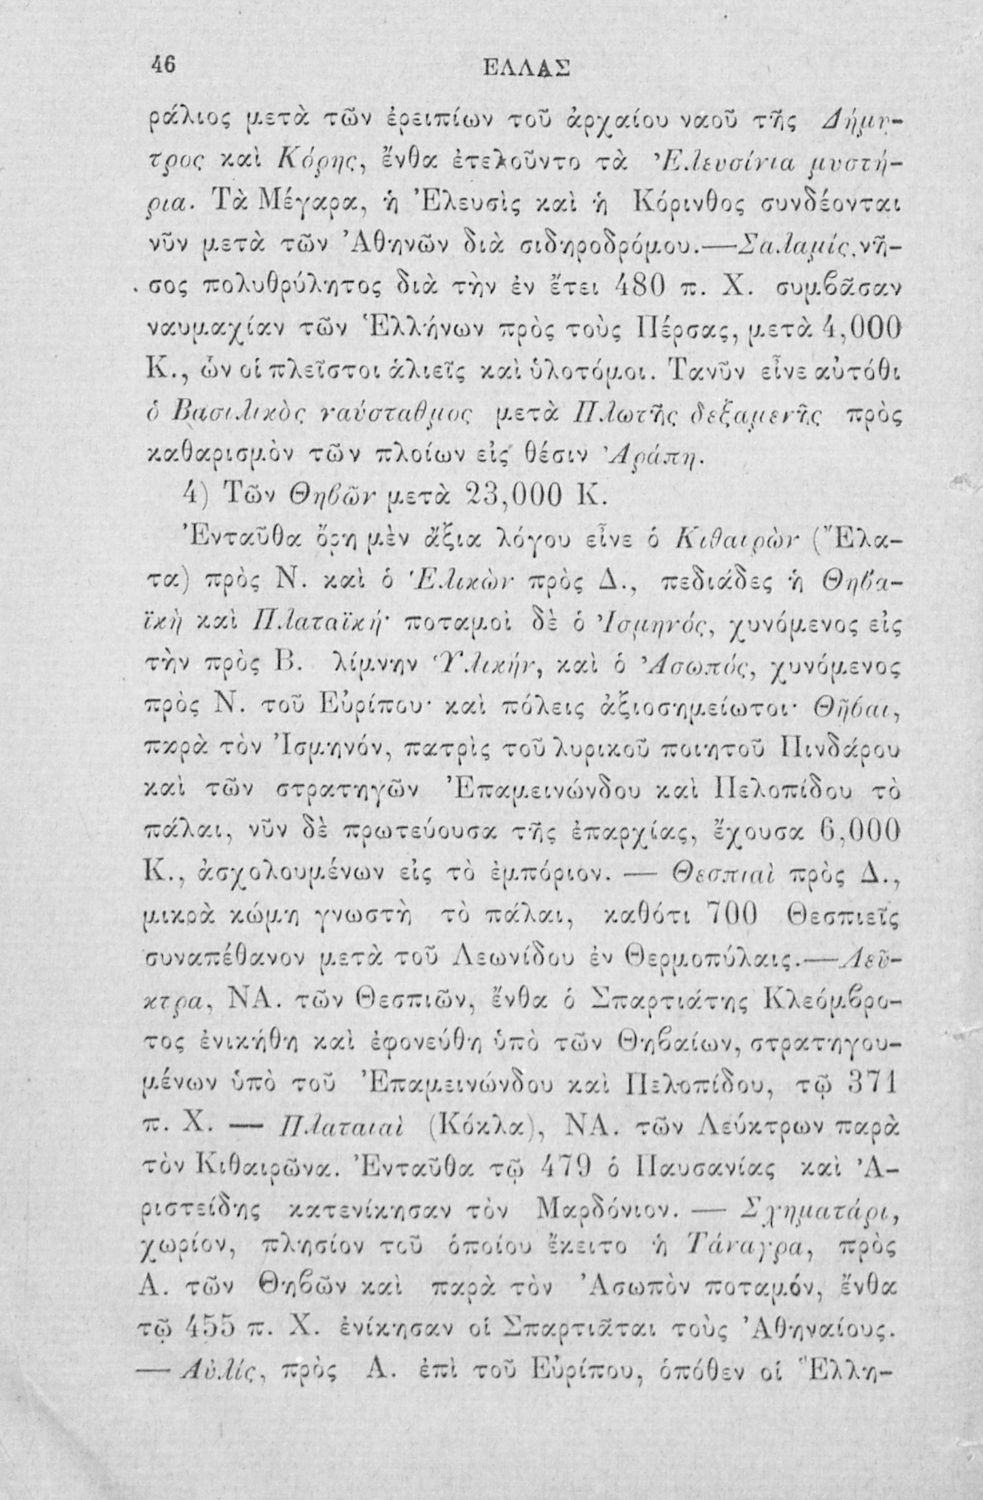 46 ΕΛΛΑΣ
ράλιος μετὰ τῶν ἐρειπίων τοῦ ἀρχαίου ναοῦ τῆς Δήμη-
τρος καὶ Κόρης, ἔνθα ἐτελοῦντο τὰ Ἐλευσίνια μυστή-
ρια. Τὰ Μέγαρα, ἡ Ἐλευσὶς καὶ ἡ Κόρινθος συνδέονται
νῦν μετὰ τῶν Ἀθηνῶν διὰ σιδηροδρόμου.—Σαλαμίς, νῆ-
σος πολυθρύλητος διὰ τὴν ἐν ἔτει 480 π. Χ. συμβᾶσαν
ναυμαχίαν τῶν Ἑλλήνων πρὸς τοὺς Πέρσας, μετὰ 4,000
Κ., ὧν οἱ πλεῖστοι ἁλιεῖς καὶ ὑλοτόμοι. Τανῦν εἶνε αὐτόθι
ὁ Βασιλικὸς ναύσταθμος μετὰ Πλωτῆς δεξαμενῆς πρὸς
καθαρισμὸν τῶν πλοίων εἰς θέσιν Ἀράπη.
4) Τῶν Θηβῶν μετὰ 23,000 Κ.
Ἐνταῦθα ὄρη μὲν ἄξια λόγου εἶνε ὁ Κιθαιρὼν (Ἔλα-
τα) πρὸς Ν. καὶ ὁ Ἑλικὼν πρὸς Δ., πεδιάδες ἡ Θηβα-
ϊκὴ καὶ Πλαταϊκή· ποταμοὶ δὲ ὁ Ἰσμηνός, χυνόμενος εἰς
τὴν πρὸς Β. λίμνην Ὑλικήν, καὶ ὁ Ἀσωπός, χυνόμενος
πρὸς Ν. τοῦ Εὐρίπου· καὶ πόλεις ἀξιοσημείωτοι· Θῆβαι,
παρὰ τὸν Ἰσμηνόν, πατρὶς τοῦ λυρικοῦ ποιητοῦ Πινδάρου
καὶ τῶν στρατηγῶν Ἐπαμεινώνδου καὶ Πελοπίδου τὸ
πάλαι, νῦν δὲ πρωτεύουσα τῆς ἐπαρχίας, ἔχουσα 6,000
Κ., ἀσχολουμένων εἰς τὸ ἐμπόριον. — Θεσπιαὶ πρὸς Δ.,
μικρὰ κώμη γνωστὴ τὸ πάλαι, καθότι 700 Θεσπιεῖς
συναπέθανον μετὰ τοῦ Λεωνίδου ἐν Θερμοπύλαις.—Λεῦ-
κτρα, ΝΑ. τῶν Θεσπιῶν, ἔνθα ὁ Σπαρτιάτης Κλεόμβρο-
τος ἐνικήθη καὶ ἐφονεύθη ὑπὸ τῶν Θηβαίων, στρατηγου-
μένων ὑπὸ τοῦ Ἐπαμεινώνδου καὶ Πελοπίδου, τῷ 371
π. Χ. — Πλαταιαὶ (Κόκλα), ΝΑ. τῶν Λεύκτρων παρὰ
τὸν Κιθαιρῶνα. Ἐνταῦθα τῷ 479 ὁ Παυσανίας καὶ Ἀ-
ριστείδης κατενίκησαν τὸν Μαρδόνιον. — Σχηματάρι,
χωρίον, πλησίον τοῦ ὁποίου ἔκειτο ἡ Τάναγρα, πρὸς
Α. τῶν Θηβῶν καὶ παρὰ τὸν Ἀσωπὸν ποταμόν, ἔνθα
τῷ 455 π. Χ. ἐνίκησαν οἱ Σπαρτιᾶται τοὺς Ἀθηναίους.
— Αὐλίς, πρὸς Α. ἐπὶ τοῦ Εὐρίπου, ὁπόθεν οἱ Ἕλλη-